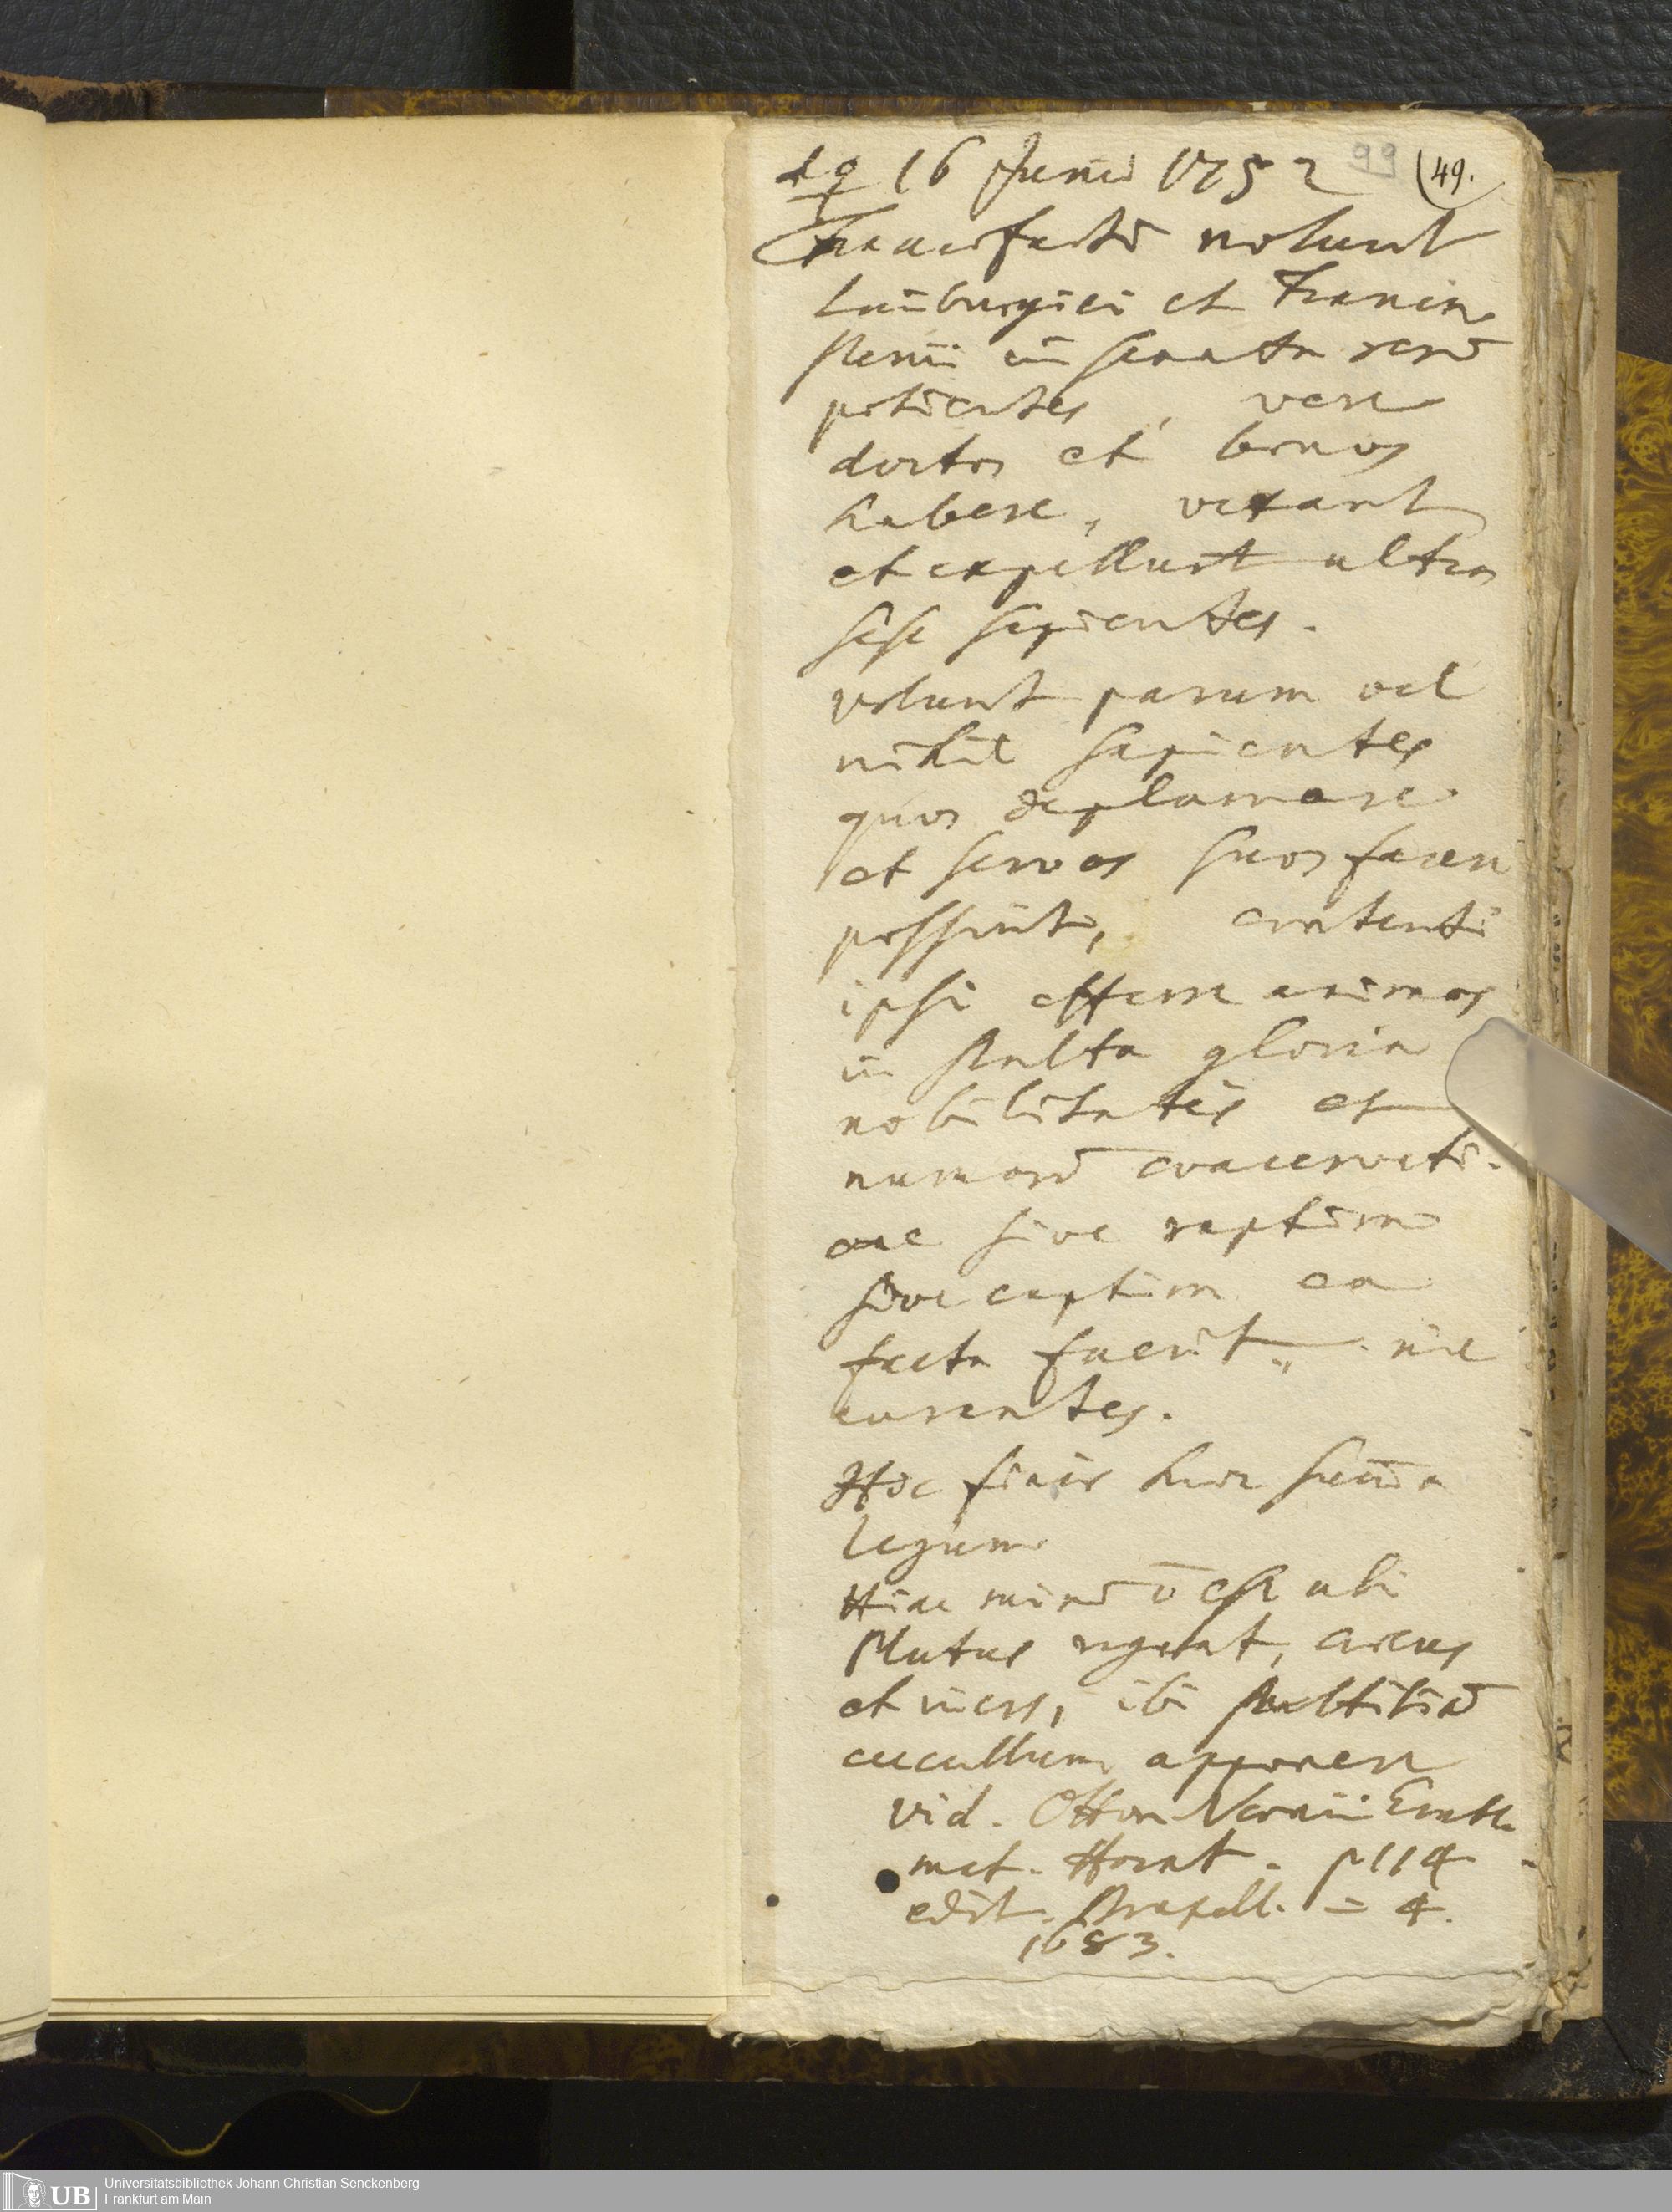 d ♀ 16 Junii 1752 99 (49.
Francofurti nolunt
Limburgici et Frauen
steinii in senatu rerū
potientes, vere
doctos et bonos
habere, vexant
et expellunt ultra
sese sapientes.
volunt parum vel
nihil sapientes
quos deplumare
et servos suos facere
possint, contenti
ipsi efferre animos
in stulta gloria
nobilitatis et
numorū coacervati-
one sive raptim
sive captim ea
facta fuerit, nil
curantes.
Hic finis huic sum̄a
legum
Hinc mirū ō est ubi
Plutus regnat, circus
et iners, ibi stultitiā
cucullum apponere
vid. Otton Vaenii Emble
mat. Horat. p 114
edit. Bruxell. = 4.
1683.
UB Universitätsbibliothek Johann Christian Senckenberg
Frankfurt am Main